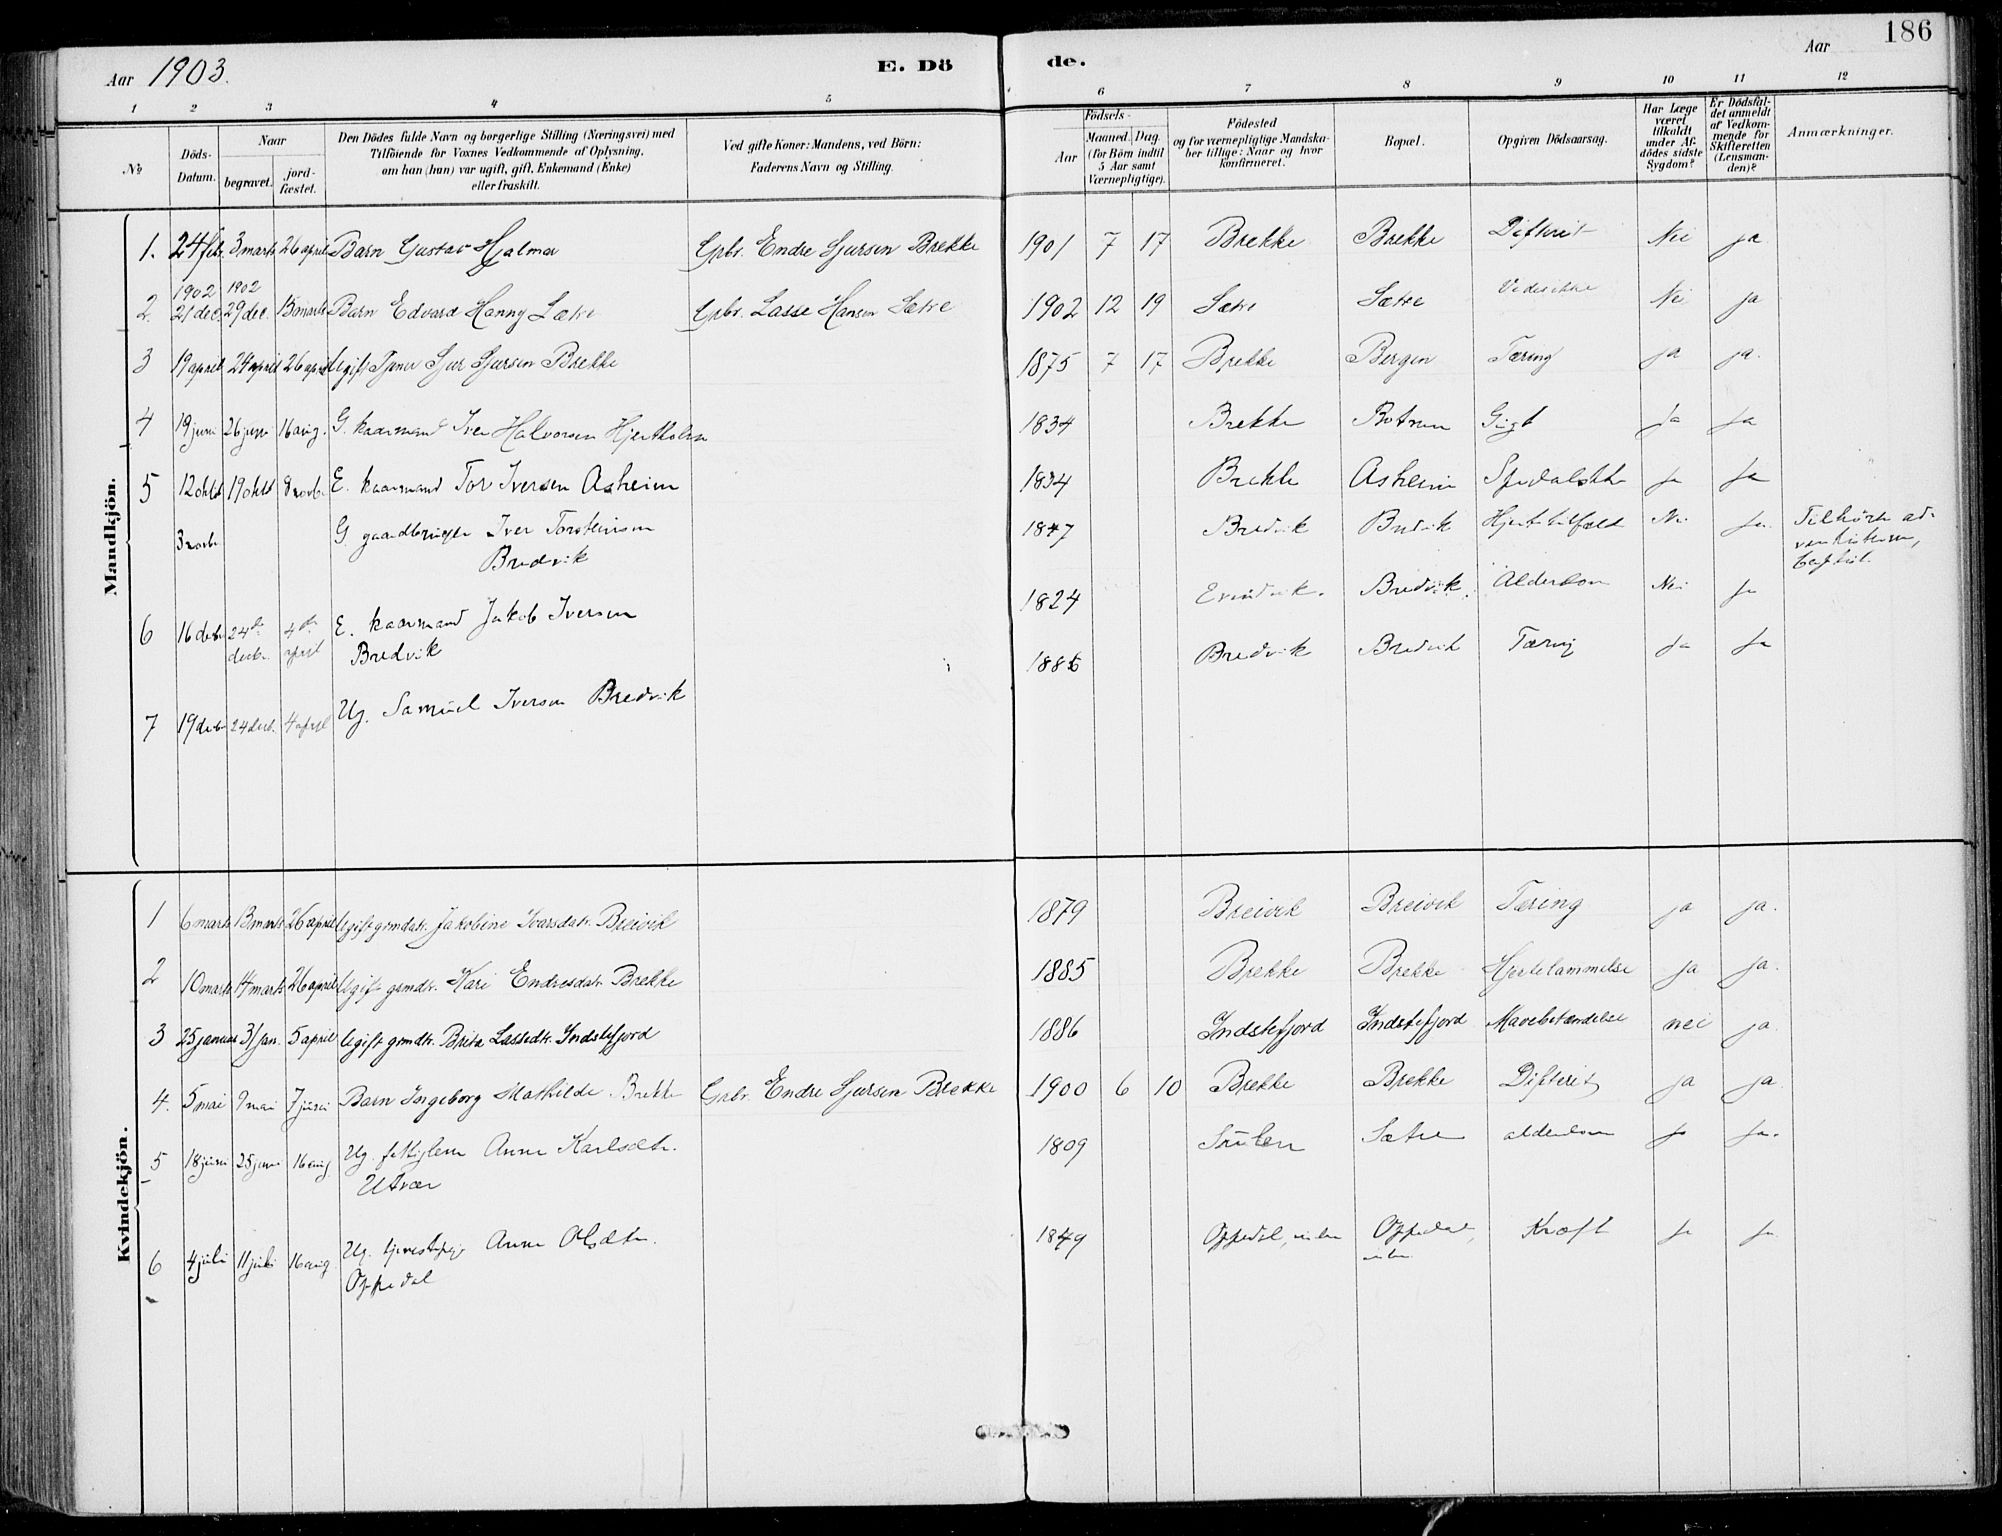 186
Aar 1903.
E. Dö de.
Aar
1 2 3 4 5 6 7 8 9 10 11 12
No
Döds-Datum.
Naar
begravet.
jord-fæstet.
Den Dödes fulde Navn og borgerlige Stilling (Næringsvei) med
Tilföiende for Voxnes Vedkommende af Oplysning,
om han (hun) var ugift, gift, Enkemand (Enke)
eller fraskilt.
Ved gifte Koner: Mandens, ved Börn:
Faderens Navn og Stilling.
Födsels-
Aar
Maaned. Dag.
(for Börn indtil
5 Aar samt
Værnepligtige).
Födested
og for værnepligtige Mandska-
ber tillige: Naar og hvor
konfirmeret.
Bopæl.
Opgiven Dödsaarsag.
Har Læge
været
tilkaldt
under Af-
dödes sidste
Sygdom?
Er Dödsfal-
det anmeldt
af Vedkom-
mende for
Skifteretten
(Lensman-
den)?
Anmærkninger.
Mandkjön.
1. 24 febr. 3 marts 26 april Barn Gustav Hjalmar Gbr. Endre Sjursen Brekke 1901 7 17 Brekke Brekke Difterit Nei ja
1902 1902
2. 21 dec. 29 dec. 15 marts Barn Edvard Hanny Sætre Gbr. Lasse Hansen Sætre 1902 12 19 Sætre Sætre Vides ikke Nei ja
3 19 april 24 april 26 april Ugift Tjener Sjur Sjursen Brekke 1875 7 17 Brekke Bergen Tæring ja ja.
4 19 juni 26 juni 16 aug. G. kaarmand Iver Halvorsen Hjertholm 1834 Brekke Botnen Gigt Ja Ja
5 12 oktb 19 oktb 8 novbr. E. kaarmand Tor Iversen Asheim 1834 Brekke Asheim Spedalskh Ja Ja
3 novbr G. gaardbruger Iver Torsteinsen 1847 Bredvik Bredvik Hjertetilfæld Nei Ja. Tilhørte ad-
Bredvik
ventisterne,
6 16 decbr 24de 4de E. kaarmand Jakob Iversen 1824 Evindvik. Bredvik. Alderdom Nei Ja
decbr. april Bredvik
7 19 decbr 24 decb. 4 april Ug. Samuel Iversen Bredvik 1886 Bredvik Bredvik Tæring Ja Ja
Kvindekjön.
1 6 marts 13 marts 26 april Ugift grmdatr. Jakobine Ivarsdatr. Breivik 1879 Breivik Breivik Tæring ja ja.
2 10 marts 14 marts 26 april Ugift grmdr. Kari Endresdatr. Brekke 1885 Brekke Brekke Hjertelammelse ja ja.
3 25 januar 31 jan. 5 april Ugift grmdtr. Brita Lassedtr. Indstefjord 1886 Indstefjord Indstefjord Mavebetændelse nei ja
4. 5 mai 9 mai 7 juni Barn Ingeborg Mathilde Brekke Gbr. Endre Sjursen Brekke 1900 6 10 Brekke Brekke Difterit ja ja
5 18 juni 25 juni 16 aug. Ug. Anne Karlsdtr. 1809 Sulen Sætre alderdom Ja Ja.
Utvær
6 4 juli 11 juli 16 aug. Ug. tjenestepige Anne Olsdtr. 1849 Oppedal, Oppedal, Kræft Ja Ja.
Oppedal